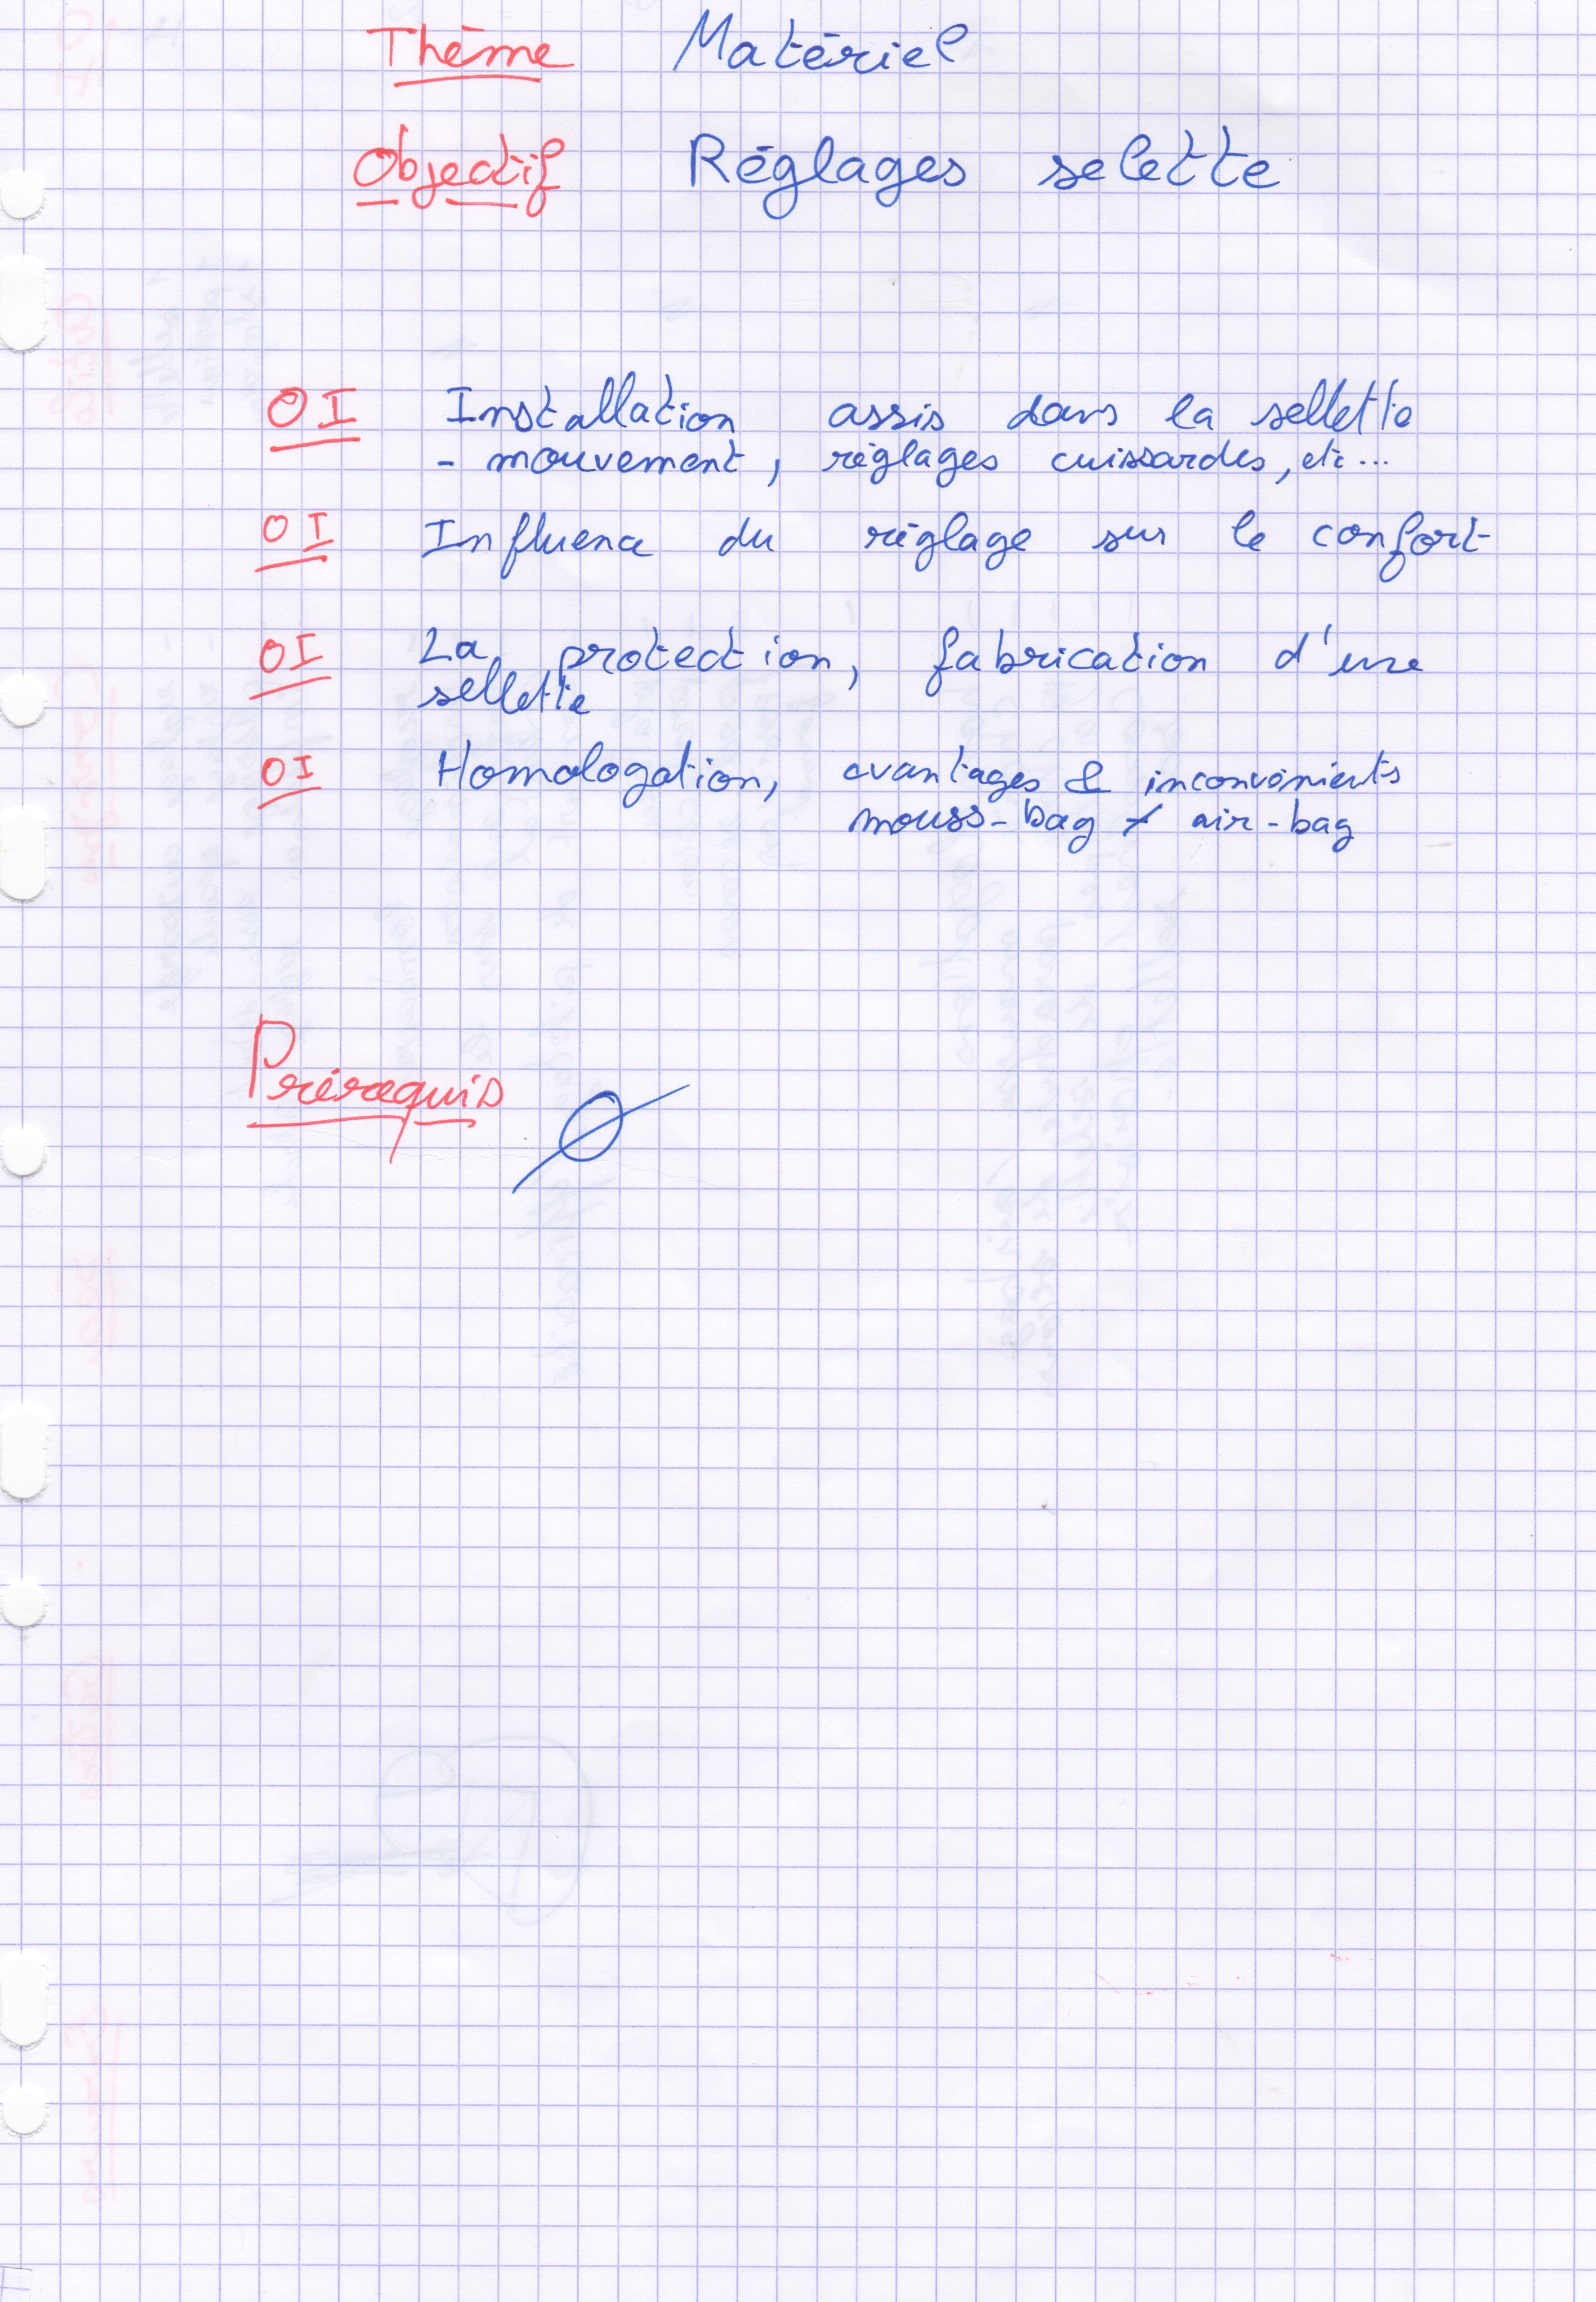 Thème Matériel
Objectif Réglages selette
OI Installation assis dans la sellette
- mouvement, réglages cuissardes, etc...
OI Influence du réglage sur le confort
OI La protection, fabrication d'une
sellette
OI Homologation, avantages & inconvénients
mouss-bag ≠ air-bag
Prérequis Ø